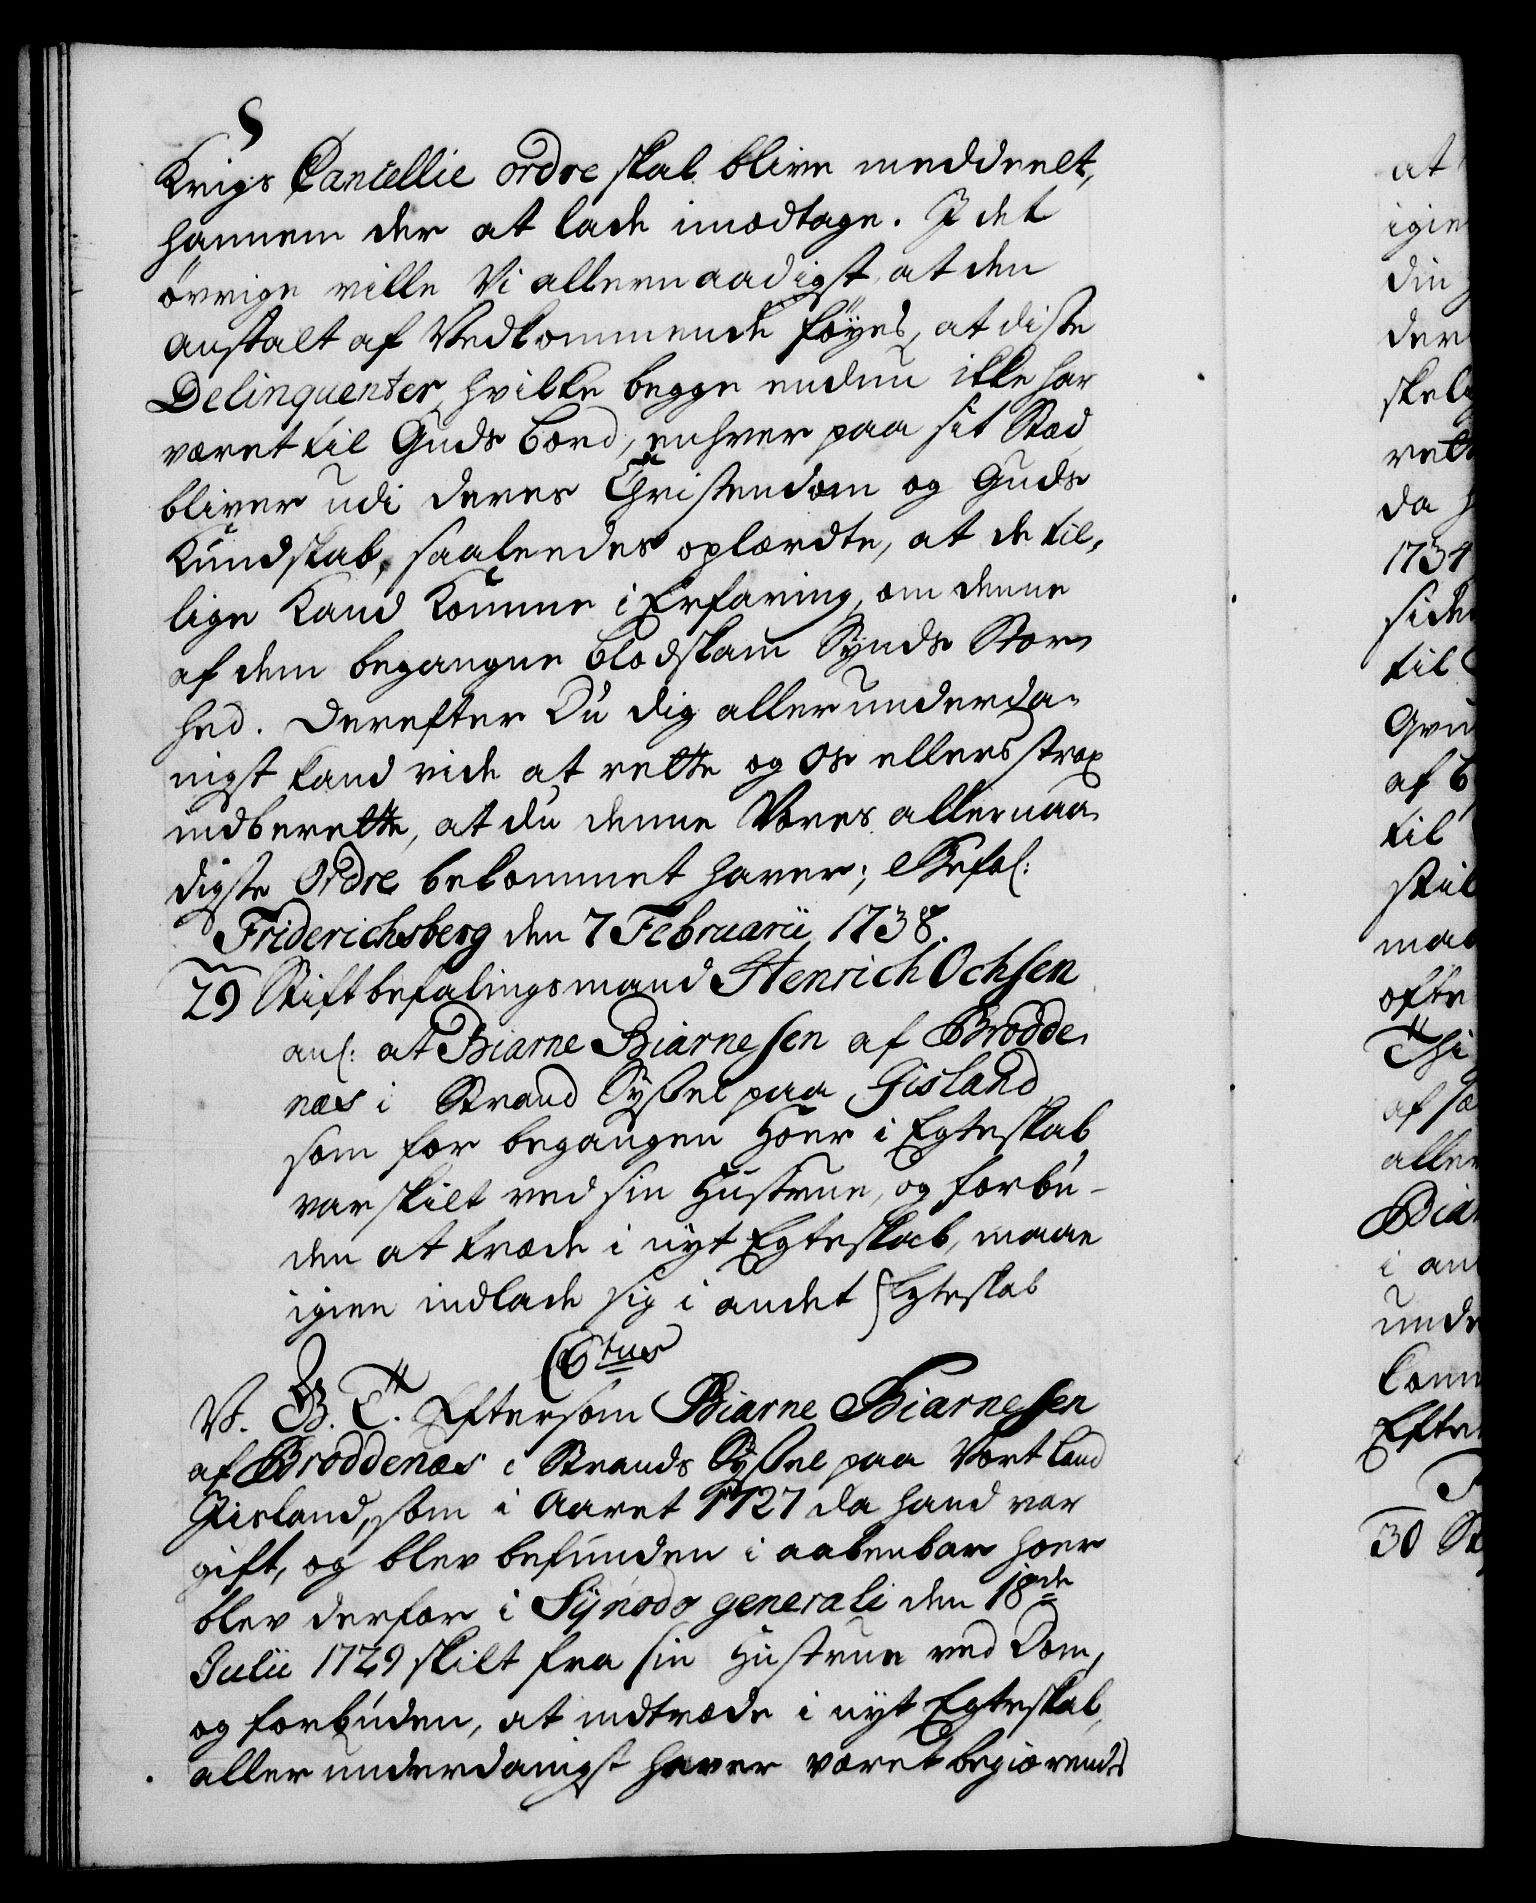 Krigs Cancellie ordre skal blive meddeelt,
hannem der at lade imodtage. I det
øvrige ville Vi allernaadigst, at den
anstalt af Vedkommende føyes, at disse
Delinquenter, hvilke begge endnu ikke har
været til Guds bord, enhver paa sit Stæd
bliver udi deres Christendom og Guds
Kundskab, saaleedes oplærdte, at de til-
lige Kand komme i Erfaring, om denne
af dem begangne blodskam Synds Stor-
hed. Derefter Du dig allerunderda-
nigst kand vide at rette og os ellers strax
indberette, at du denne Vores allernaa-
digste Ordre bekommet haver; Befal:
Friderichsberg den 7 Februarii 1738.
29 Stiftbefalingsmand Henrich Ochsen
anl: at Biarne Biarnesen af Brodde-
næs i Strand Syssel paa Jisland
som for begangen Hoer i Egteskab
var skilt ved sin Hustrue, og forbu-
den at træde i nyt Egteskab, maae
igien indlade sig i andet Egteskab
C 6tus
V. G. T. Eftersom Biarne Biarnesen
af Broddenæs i Strands Syssel paa Vort Land
Jisland, som i Aaret 1727 da hand var
gift, og blev befunden i aabenbar hoer
blev derfor i Synodo generali den 18de
Julii 1729 skilt fra sin Hustrue ved Dom,
og forbuden, at indtræde i nyt Egteskab,
allerunderdanigst haver været begiærends
at
igie
din
der
skel
rett
da
1734
side
til
Gru
af
til
skil
maa
ofte
Thi
af
aller
Biar
i an
unde
Com
Efter
30 St